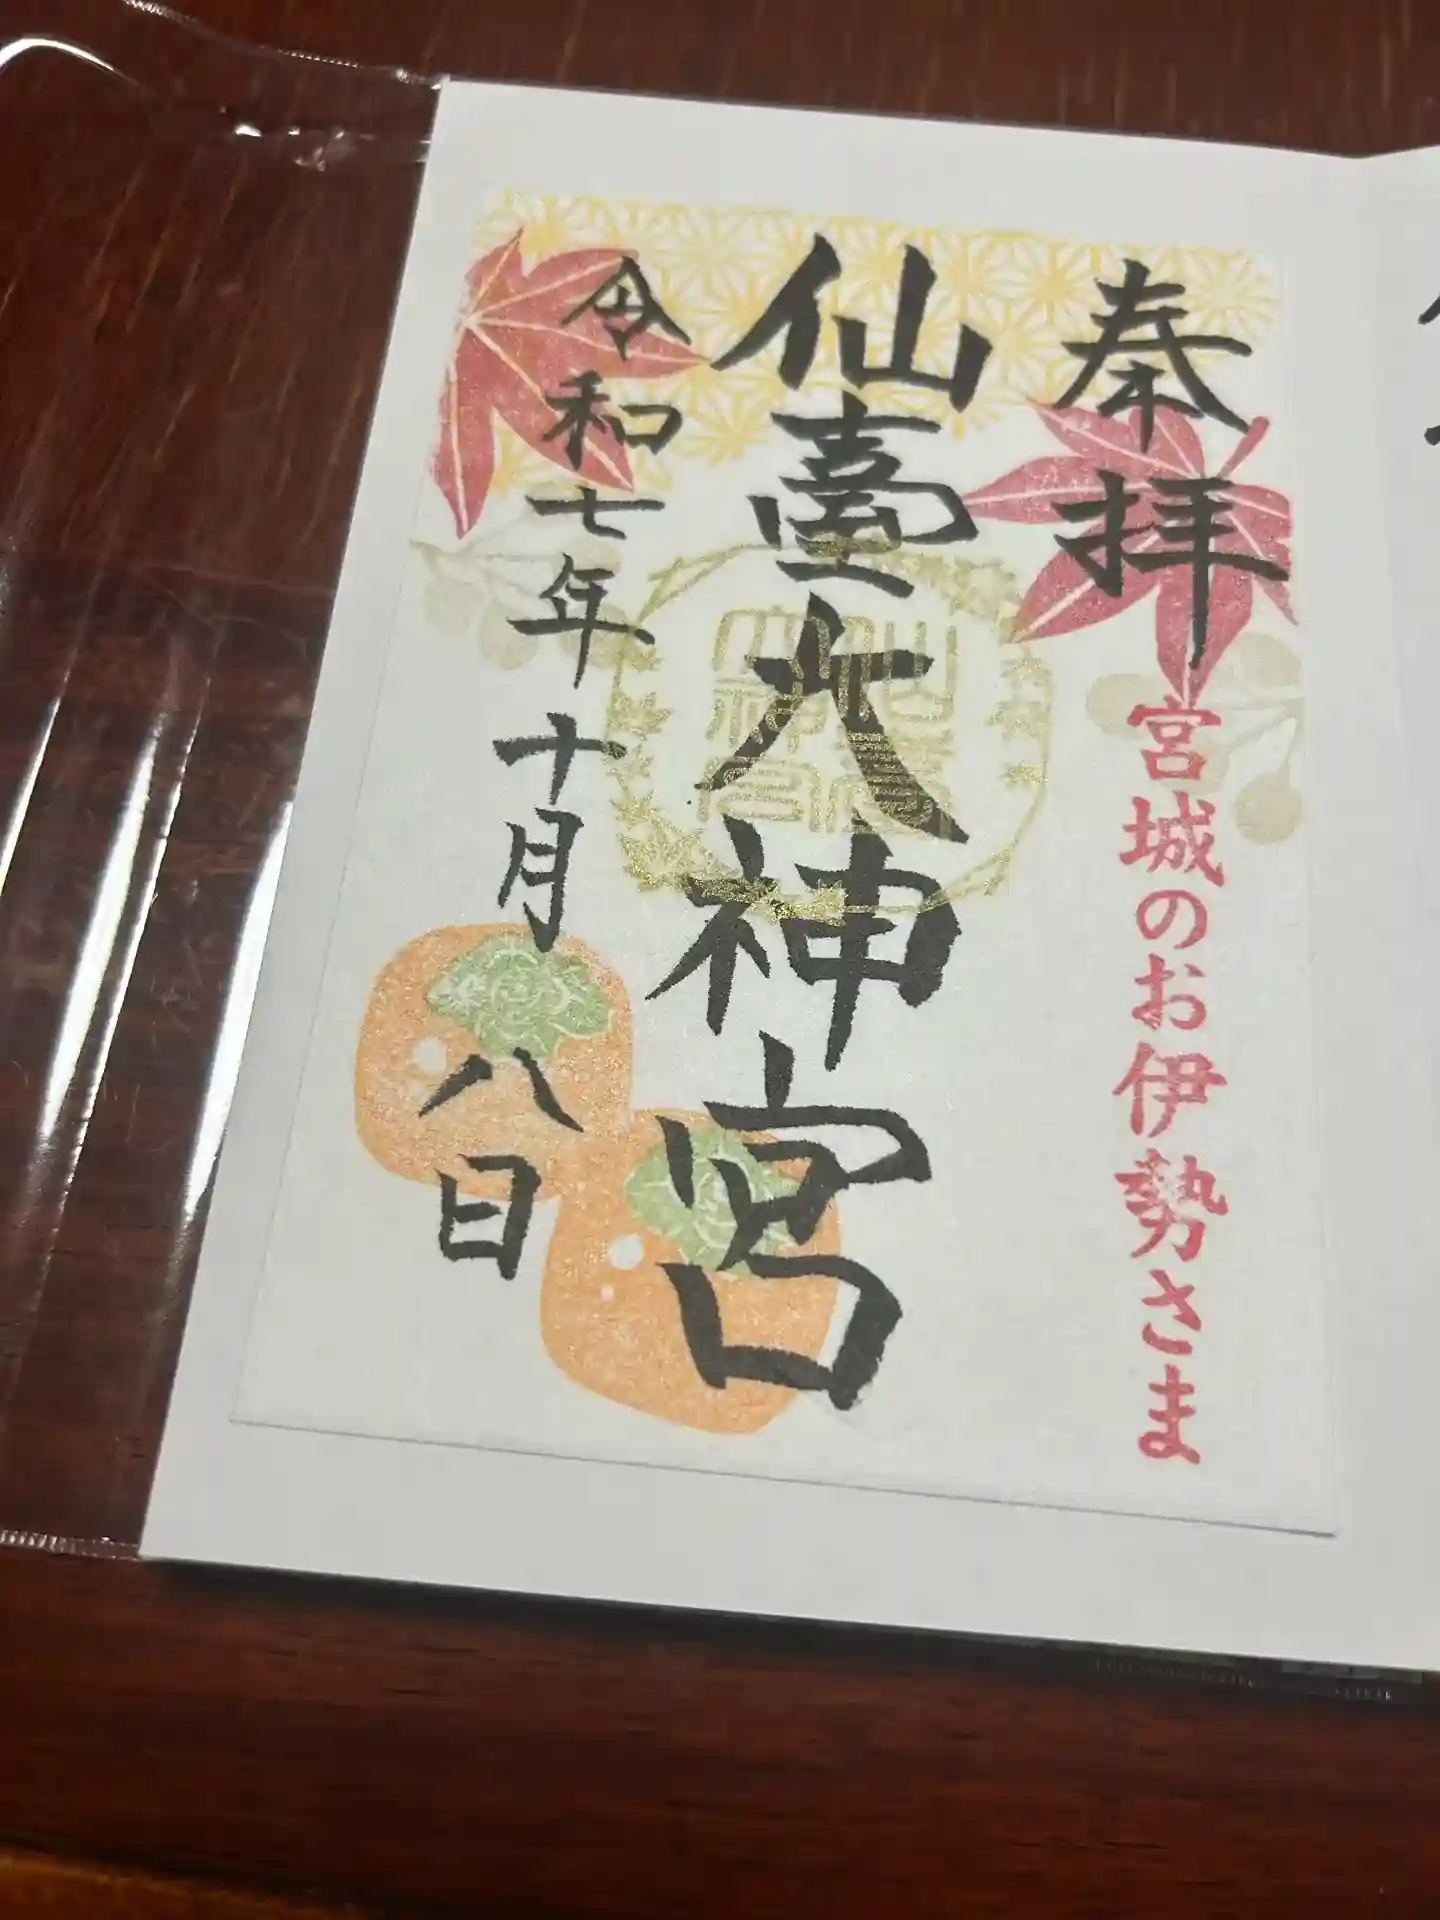 奉拝
宮城のお伊勢さま
仙臺大神宮
仙臺大神宮
令和七年十月八日